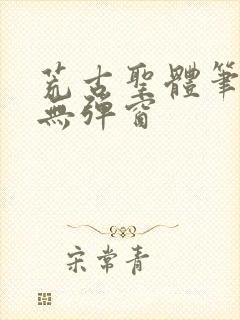 荒古聖體筆
無彈窗
宋常青